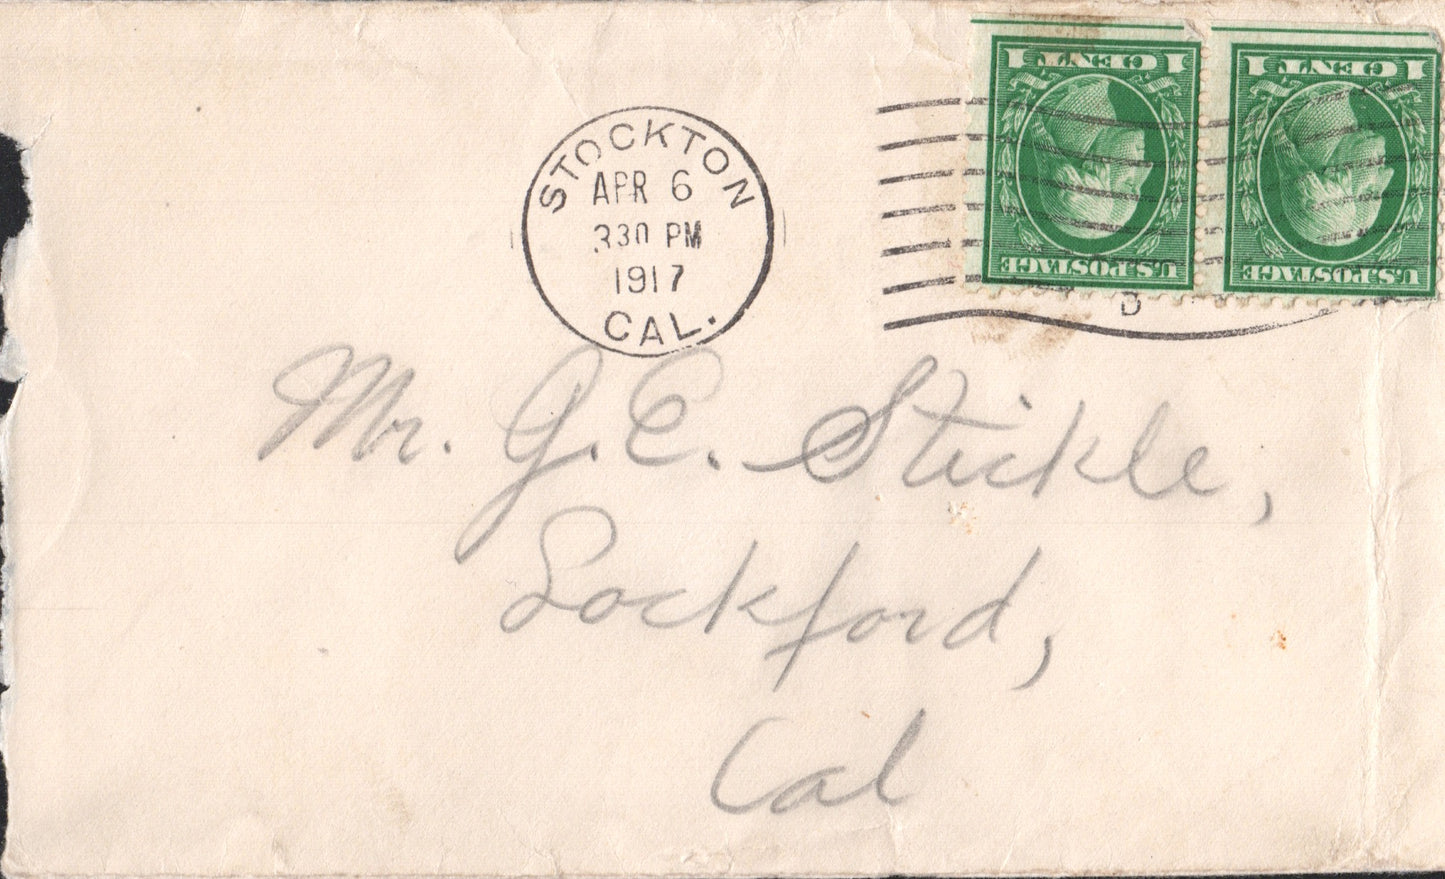 STOCKTON
APR 6
330 PM
1917
CAL.
1 CENT 1
U.S. POSTAGE
1 CENT 1
U.S. POSTAGE
Mr. J. E. Stickle,
Lockford,
Cal